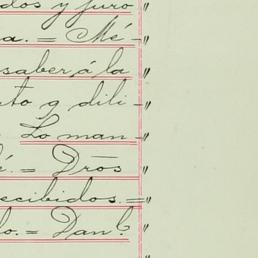 dos y juro "
a. = Mé- "
saber, á la "
to q dili- "
Lo man- "
é. = Dros "
ecibidos. = "
o. = Dan l. "